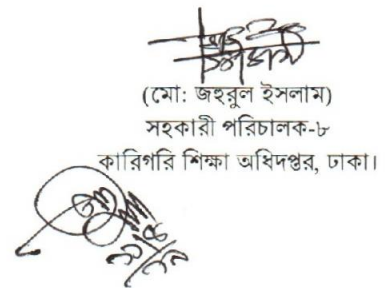 (মো: জহুরুল ইসলাম)
সহকারী পরিচালক-৮
কারিগরি শিক্ষা অধিদপ্তর, ঢাকা।